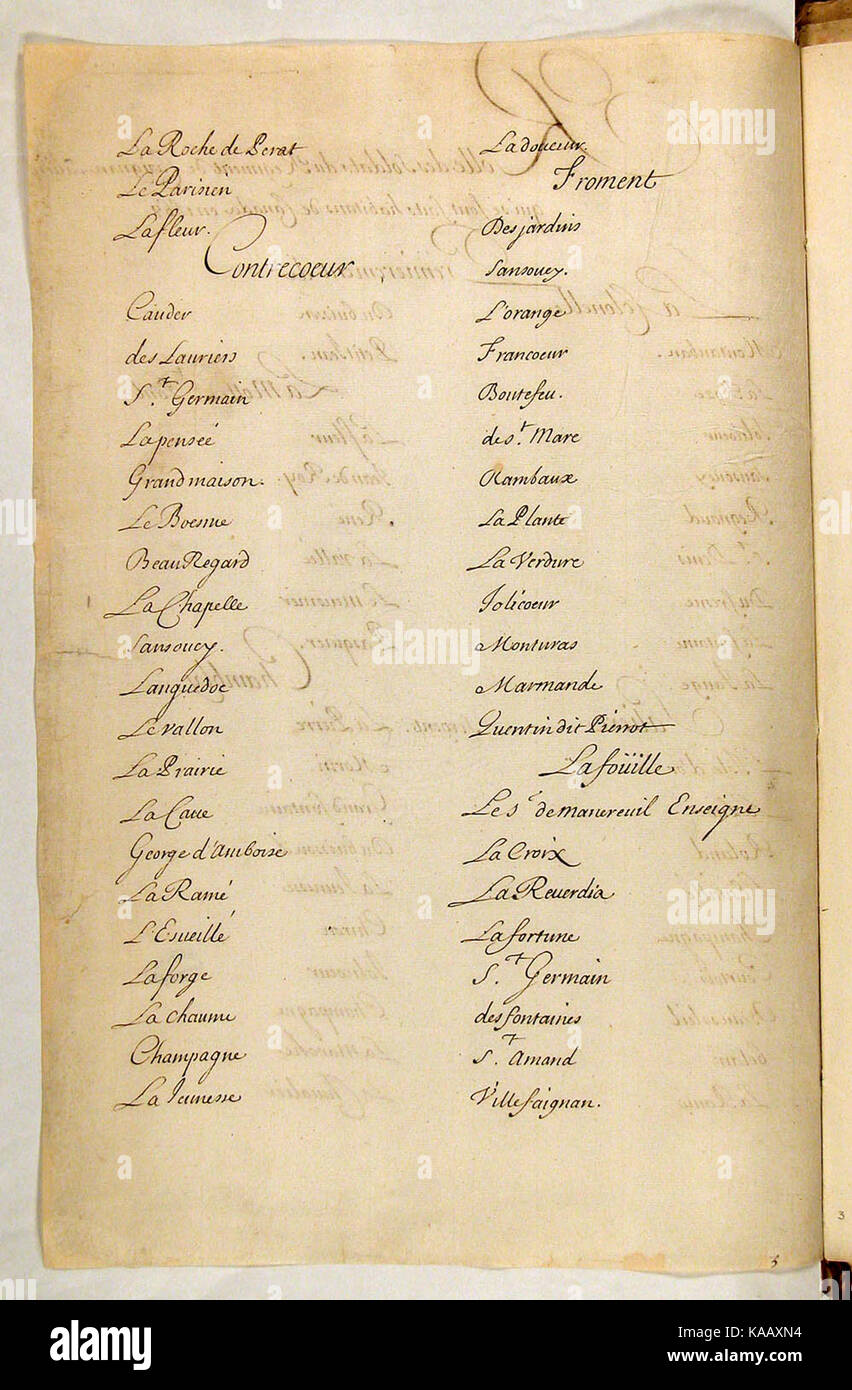 La Roche de Perat
Le Parisien
Lafleur.
Contrecoeur
Cauder
des Lauriers
S.t Germain
Lapenseé
Grandmaison.
Le Boesme
BeauRegard
La Chapelle
Sansoucy.
Languedoc
Levallon
La Prairie
La Caue
George d'Amboise
La Ramé
L'Esueillé
Laforge
La chaume
Champagne
La Jeunesse
Ladouceur.
Froment
Desjardins
Sansoucy.
L'orange
Francoeur
Boutefeu.
de s.t Mare
Rambaux
La Plante
La Verdure
Jolicoeur
Monturas
Marmande
Quentin dit Pierrot
Lafoüille
Le S.r de manereuil Enseigne
La Croix
La Reuerdia
Lafortune
S.t Germain
desfontaines
S.t Amand
Villefaignan.
3
alamy
Image ID: KAAXN4
www.alamy.com